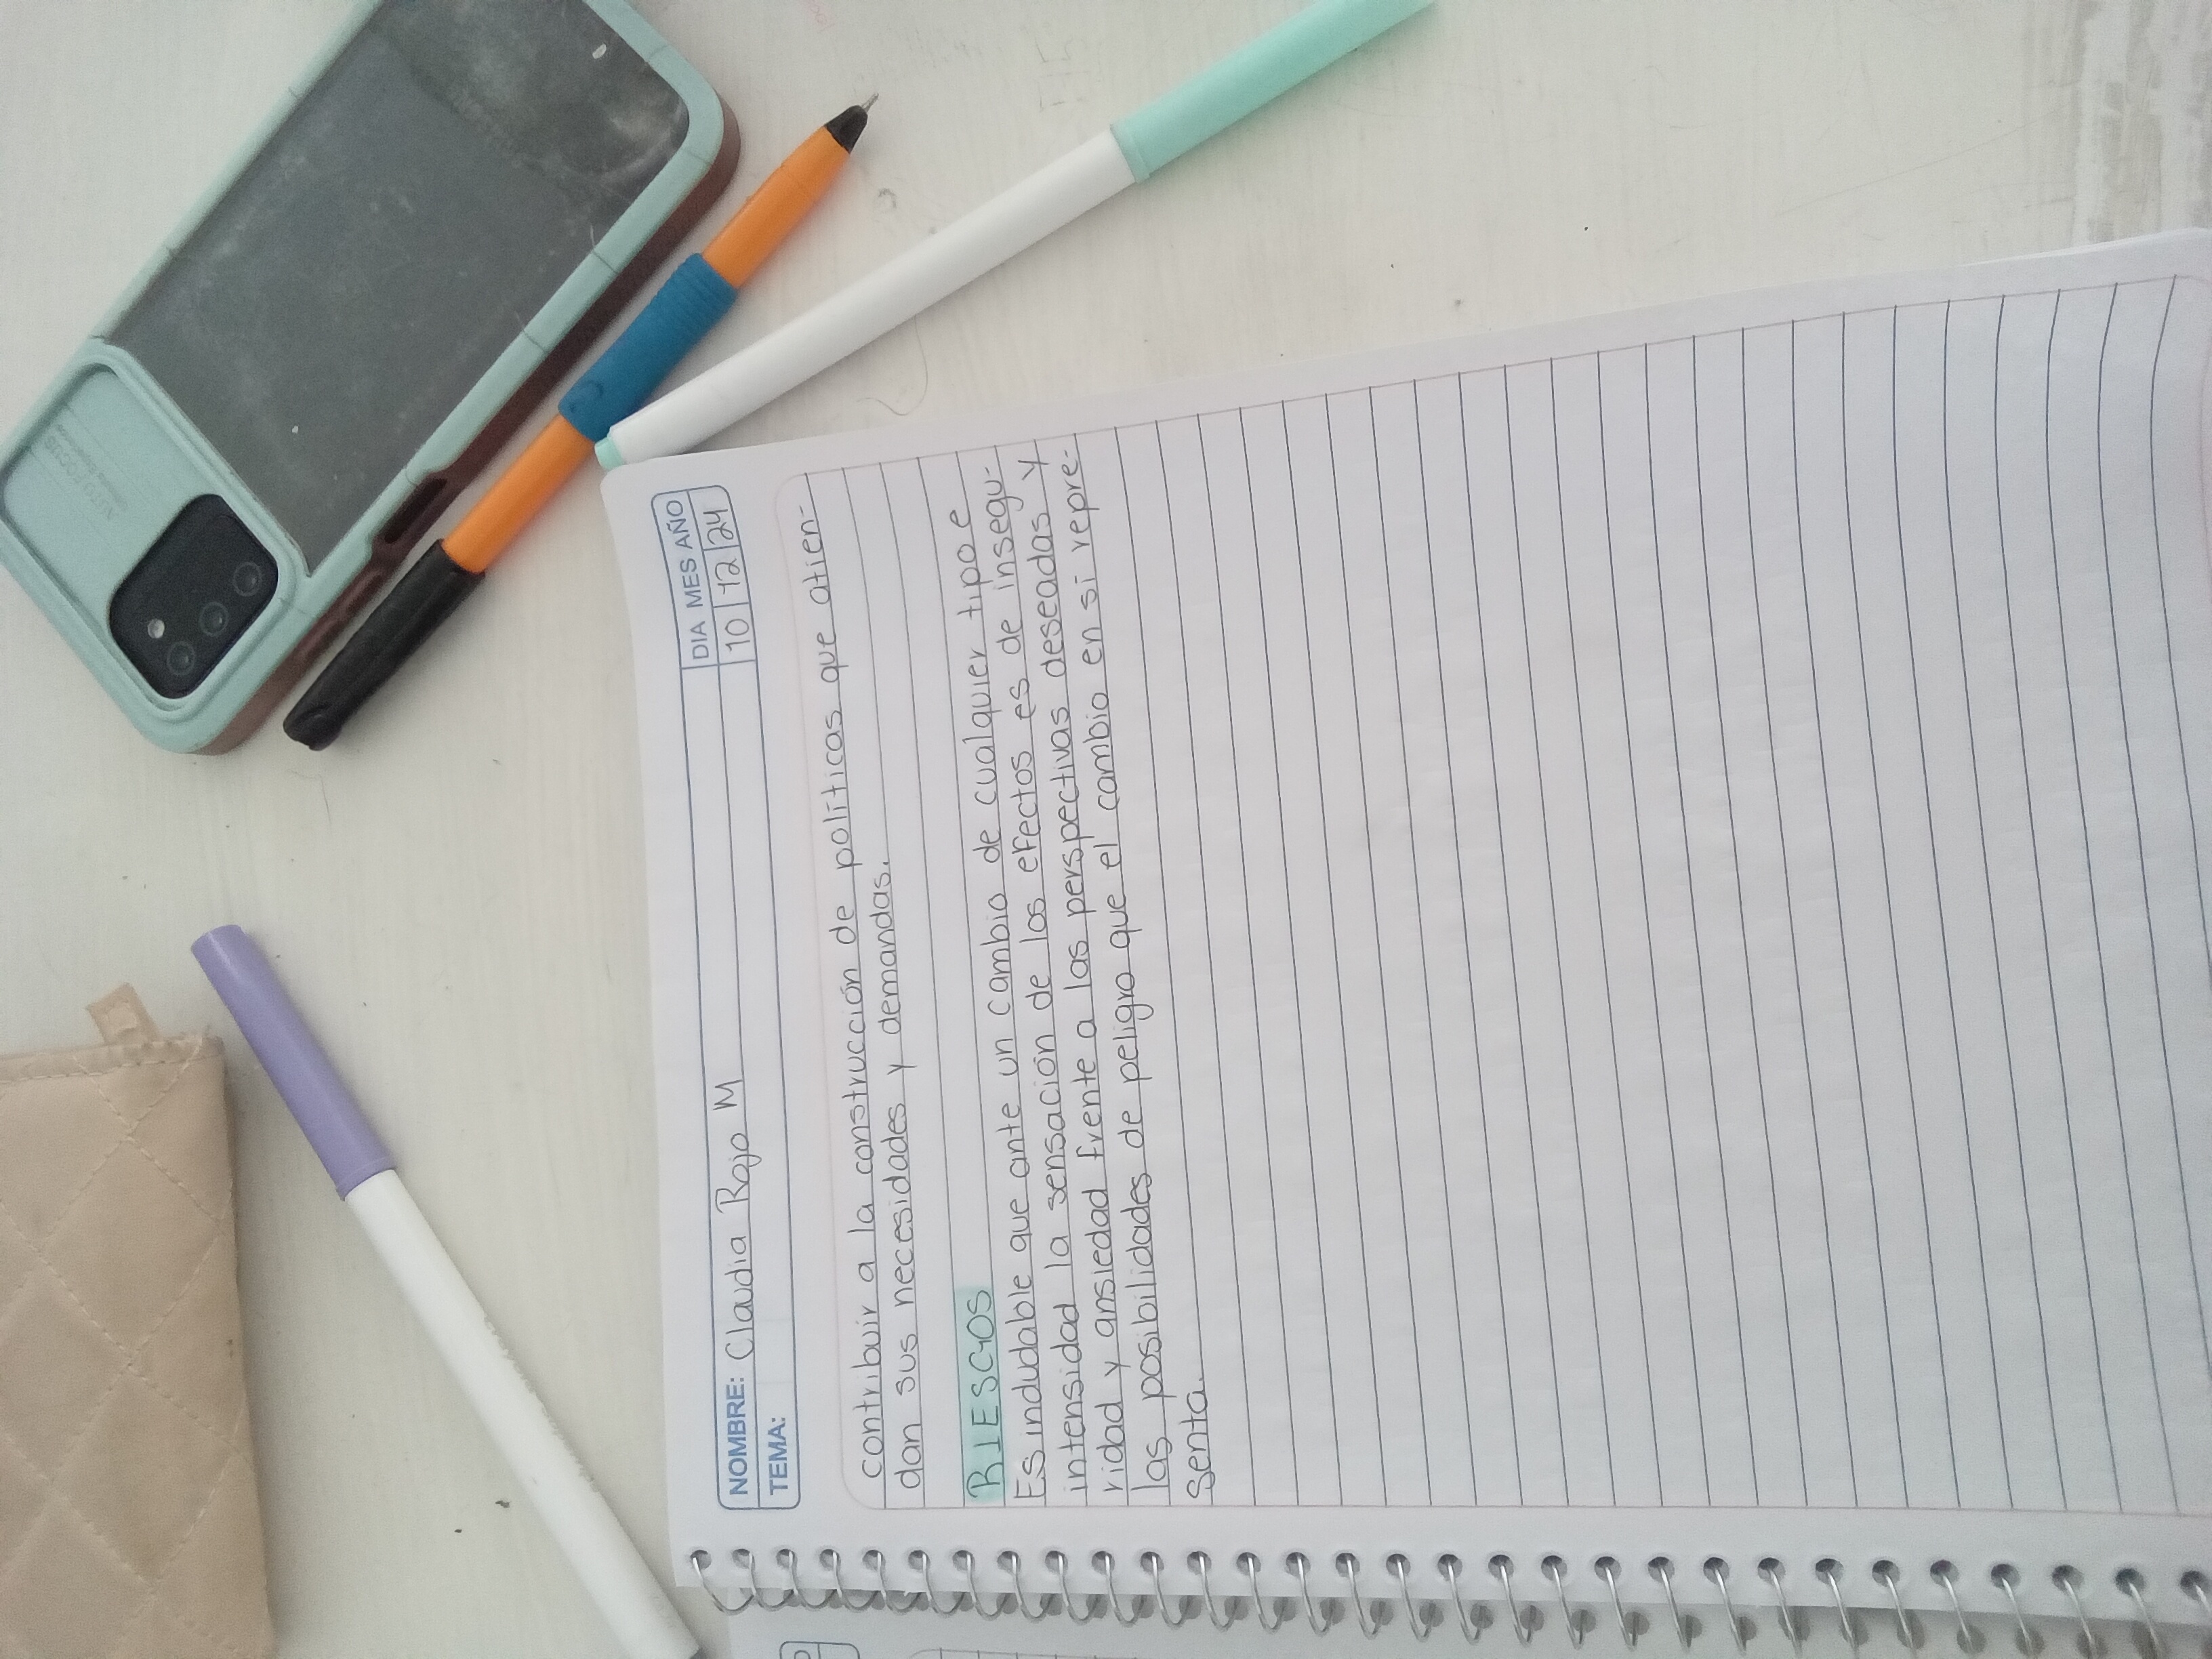 NOMBRE: Claudia Rojo M
DIA MES AÑO
10 12 24
TEMA:
contribuir a la construcción de políticas que atien-
dan sus necesidades y demandas.
RIESGOS
Es indudable que ante un cambio de cualquier tipo e
intensidad la sensación de los efectos es de insegu-
ridad y ansiedad frente a las perspectivas deseadas y
las posibilidades de peligro que el cambio en si repre-
senta.